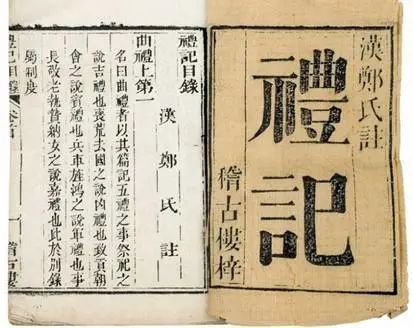 漢鄭氏註
禮記
稽古樓梓
禮記目錄
漢鄭氏註
曲禮上第一
名曰曲禮者以其篇記五禮之事祭祀之
說吉禮也喪荒去國之說凶禮也致貢朝
會之說賓禮也兵車旌鴻之說軍禮也事
長敬老執贄納女之說嘉禮也此於別錄
屬制度
禮記目錄 一 稽古樓